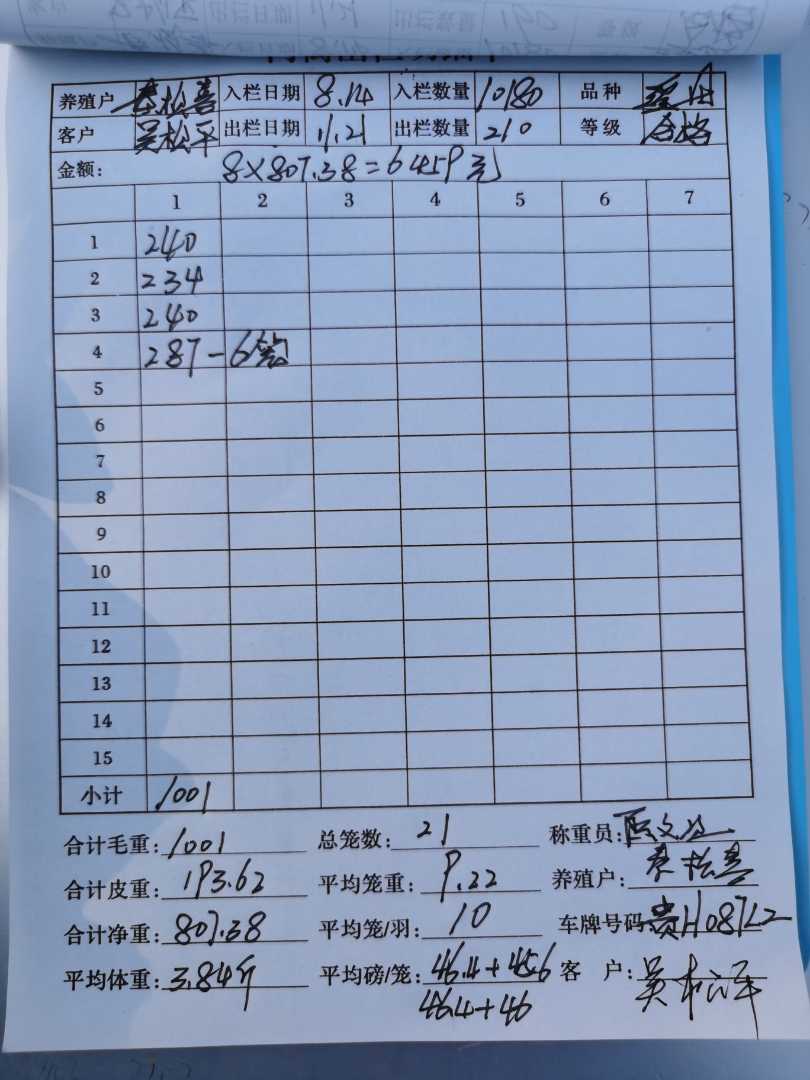 养殖户 秦松喜 入栏日期 8.14 入栏数量 10180 品种
客户 吴松平 出栏日期 11.21 出栏数量 210 等级 合格
金额: 8×807.38=6459元
1 2 3 4 5 6 7
1 240
2 234
3 240
4 287-6笼
5
6
7
8
9
10
11
12
13
14
15
小计 1001
合计毛重: 1001 总笼数: 21 称重员:
合计皮重: 193.62 平均笼重: 9.22 养殖户: 秦松喜
合计净重: 807.38 平均笼/羽: 10 车牌号码 贵H087L2
平均体重: 3.84斤 平均磅/笼: 46.4+45.6 客 户: 吴松平
46.4+46